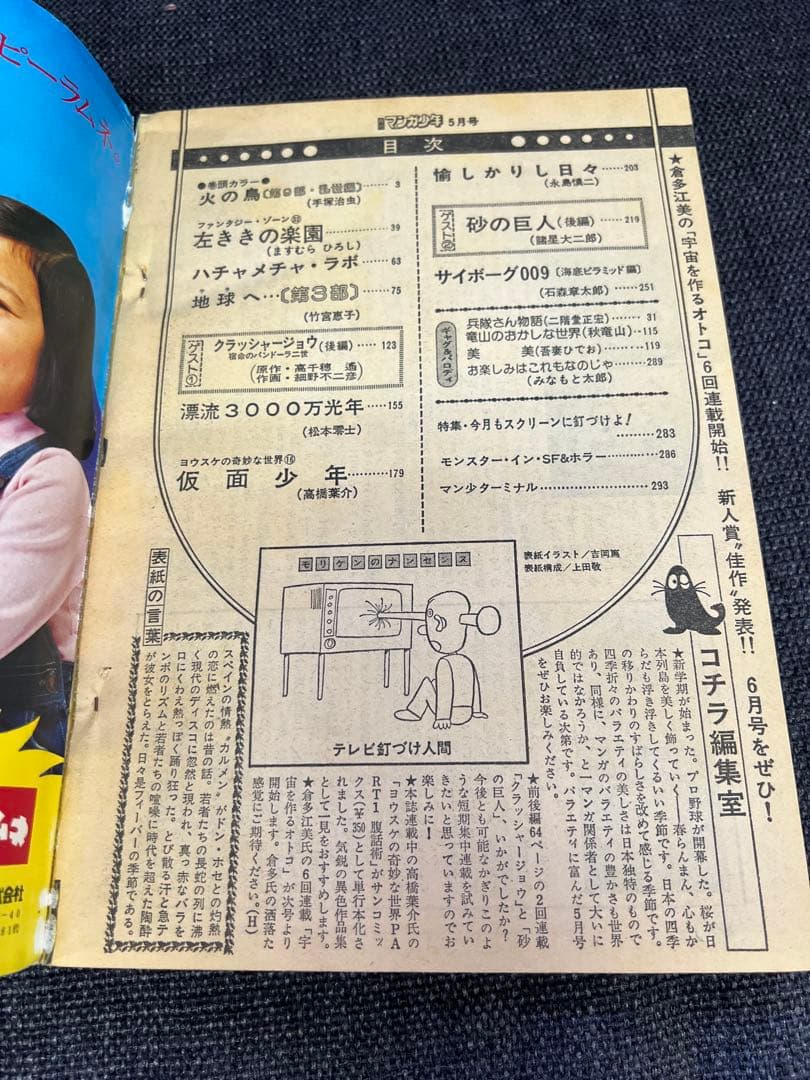 ピーラムネ。
マンガ少年 5月号
目次
●巻頭カラー●
火の鳥〔第9部・乱世篇〕……3
(手塚治虫)
ファンタジー・ゾーン
左ききの楽園……39
(ますむら ひろし)
ハチャメチャ・ラボ……63
地球へ…〔第3部〕……75
(竹宮恵子)
ゲスト①
クラッシャージョウ(後編)……123
宿命のパンドーラ二世
(原作・高千穂 遙
作画・細野不二彦)
漂流3000万光年……155
(松本零士)
ヨウスケの奇妙な世界⑯
仮面少年……179
(高橋葉介)
愉しかりし日々……203
(永島慎二)
ゲスト②
砂の巨人(後編)……219
(諸星大二郎)
サイボーグ009〔海底ピラミッド編〕
(石森章太郎)……251
ギャグ&パロディ
兵隊さん物語(二階堂正宏)……31
竜山のおかしな世界(秋竜山)…115
美美(吾妻ひでお)……119
お楽しみはこれもなのじゃ……289
(みなもと太郎)
特集・今月もスクリーンに釘づけよ!
………283
モンスター・イン・SF&ホラー……286
マン少ターミナル……293
★倉多江美の「宇宙を作るオトコ」6回連載開始!! 新人賞〝佳作〟発表!! 6月号をぜひ!
モリケンのナンセンス
テレビ釘づけ人間
表紙イラスト/吉岡篤
表紙構成/上田敬
コチラ編集室
★新学期が始まった。プロ野球が開幕した。桜が日
本列島を美しく飾っていく。春らんまん、心もか
らだも浮き浮きしてくるいい季節です。日本の四季
の移りかわりのすばらしさを改めて感じる季節です。
四季折々のバラエティの美しさは日本独特のもので
あり、同様に、マンガのバラエティの豊かさも世界
的ではなかろうか、と一マンガ関係者として大いに
自負している次第です。バラエティに富んだ5月号
をぜひお楽しみください。
★前後編64ページの2回連載
「クラッシャージョウ」と「砂
の巨人」、いかがでしたか?
今後とも可能なかぎりこのよ
うな短期集中連載を試みてい
きたいと思っていますのでお
楽しみに!
★本誌連載中の高橋葉介氏の
「ヨウスケの奇妙な世界PA
RT1 腹話術」がサンコミッ
クス(¥350)として単行本化さ
れました。気鋭の異色作品集
として一見をおすすめします。
★倉多江美氏の6回連載「宇
宙を作るオトコ」が次号より
開始します。倉多氏の洒落た
感覚にご期待ください。(H)
表紙の言葉
スペインの情熱〝カルメン〟がドン・ホセとの灼熱
の恋に燃えたのは昔の話。若者たちの長蛇の列に沸
く現代のディスコに忽然と現われ、真っ赤なバラを
口にくわえ熱っぽく踊り狂った。とび散る汗と急テ
ンポのリズムと若者たちの喧噪に時代を超えた陶酔
が彼女をとらえた。日々是フィーバーの季節である。
会社